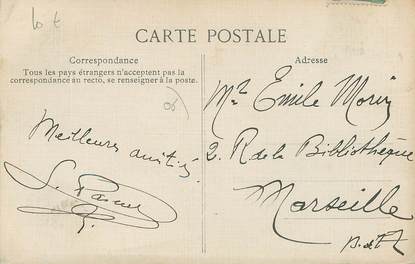 CARTE POSTALE
Correspondance
Tous les pays étrangers n'acceptent pas la
correspondance au recto, se renseigner à la poste.
Meilleures amitiés
Adresse
Mr Emile Morin
2. R de la Bibliothèque
Marseille
B. d. R